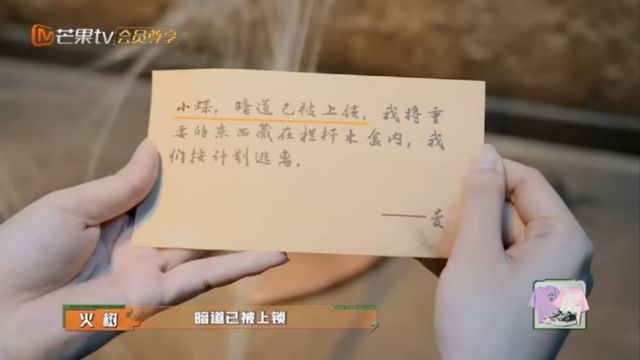 芒果tv会员尊享
小蝶，暗道已被上锁，我将重
要的东西藏在栏杆木盒内，我
们按计划逃离。
——曼
火树
暗道已被上锁